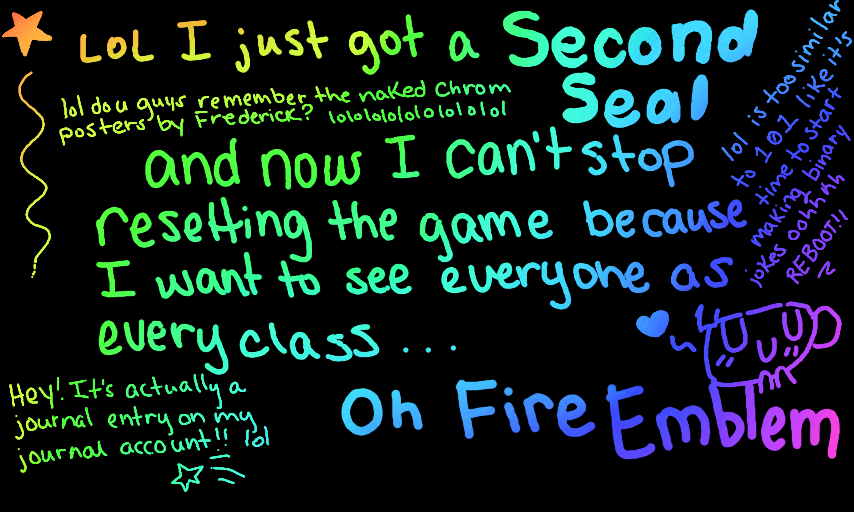 LOL I just got a Second
Seal
lol do u guys remember the naked Chrom
posters by Frederick? lolololololololol
and now I can't stop
resetting the game because
I want to see everyone as
every class...
Oh Fire Emblem
lol is too similar
to 101 like it's
time to start
making binary
jokes oohhhh
REBOOT!!
Hey! It's actually a
journal entry on my
journal account!! lol